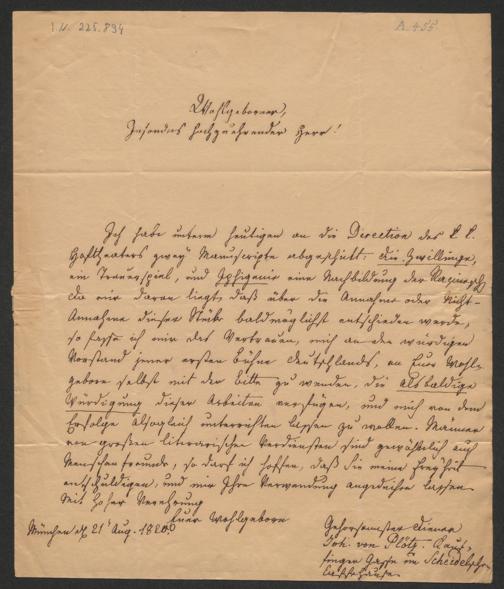 I.N. 225.894
A. 455.
Wohlgeborner,
Besonders hochzuehrender Herr!
Ich habe unterm heutigen an die Direction des k. k.
Hoftheaters zwey Manuscripte abgeschickt: die Zwillinge,
ein Trauerspiel, und Iphigenie eine Nachbildung der
Da mir daran liegt, daß über die Annahme oder Nicht-
Annahme dieser Stücke baldmöglichst entschieden werde,
so fasse ich mir das Vertrauen, mich an den würdigen
Vorstand jener ersten Bühne Deutschlands, an Euer Wohl-
geborn selbst mit der Bitte zu wenden, die alsbaldige
Würdigung dieser Arbeiten verfügen, und mich von dem
Erfolge alsogleich unterrichten lassen zu wollen. Männer
von großen literarischen Verdiensten sind gewöhnlich auch
Menschenfreunde, so darf ich hoffen, daß Sie meine Freyheit
entschuldigen, und mir Ihre Verwendung angedeihen lassen.
Mit hoher Verehrung
Euer Wohlgeborn
München 21 Aug. 1820
Gehorsamster Diener
Joh. von Plötz.
finger Gasse im